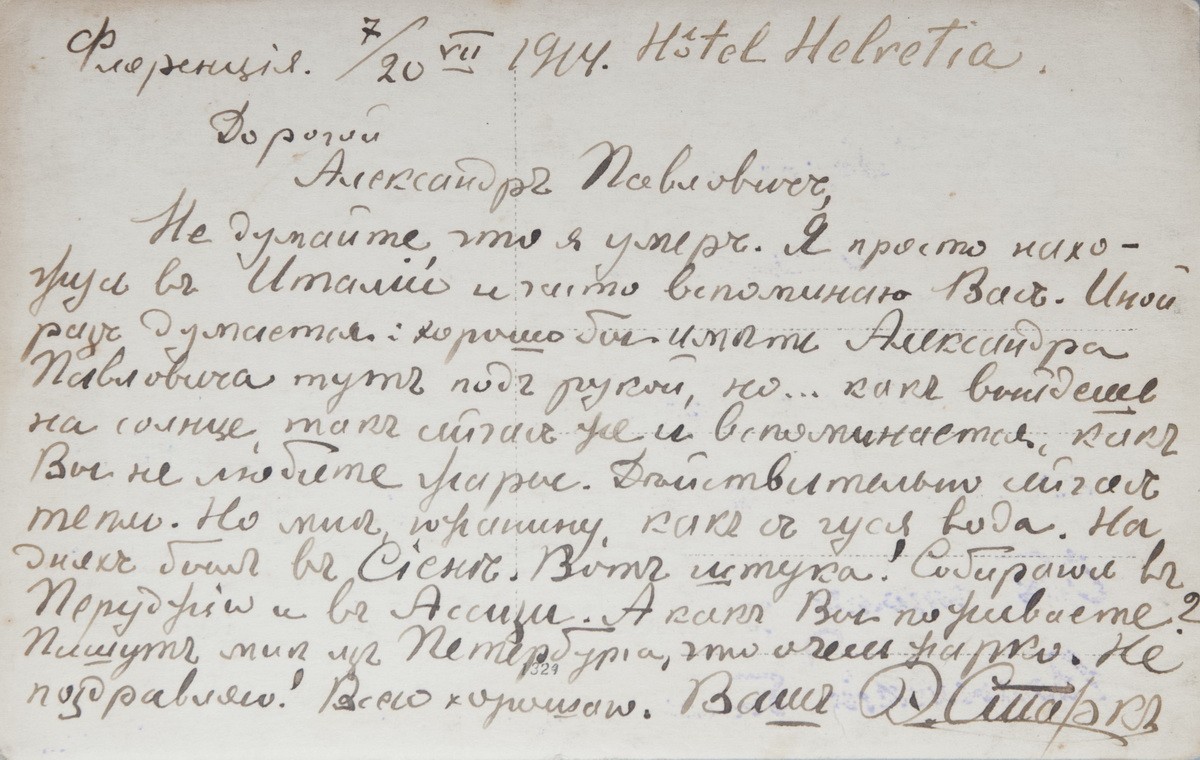 Флоренція. 7/20 VII 1914. Hôtel Helvetia.
Дорогой
Александръ Павловичъ,
Не думайте что я умеръ. Я просто нахо-
жусь въ Италіи и часто вспоминаю Васъ. Иной
разъ думается: хорошо бы имѣть Александра
Павловича тутъ подъ рукой, но... какъ выйдешь
на солнце, такъ сейчасъ же и вспоминается, какъ
Вы не любите жары. Дѣйствительно сейчасъ
тепло. Но мнѣ, южанину, какъ съ гуся вода. На
дняхъ былъ въ Сіенѣ. Вотъ штука! Собираюсь въ
Перуджію и въ Ассизи. А какъ Вы поживаете?
Пишутъ мнѣ изъ Петербурга, что очень жарко. Не
поздравляю! Всего хорошаго. Вашъ Д. Старкъ